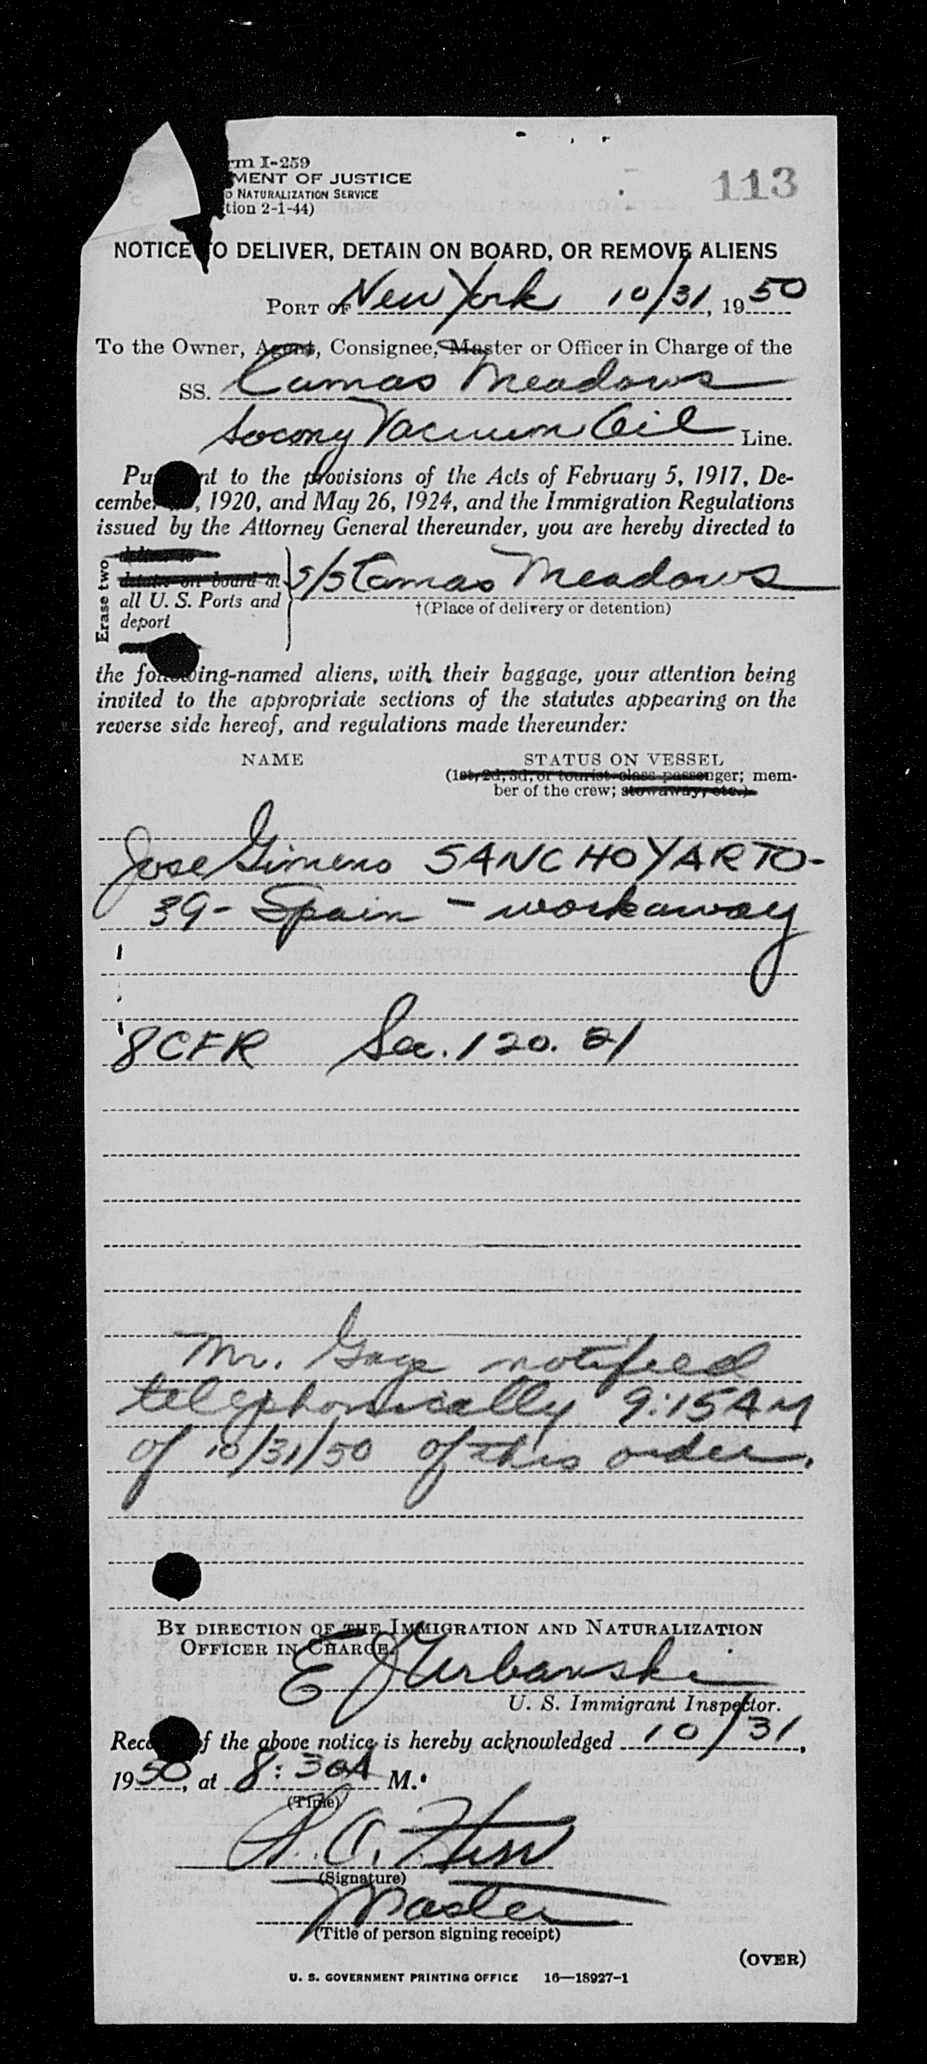 rm I-259
MENT OF JUSTICE
NATURALIZATION SERVICE
tion 2-1-44)
113
NOTICE TO DELIVER, DETAIN ON BOARD, OR REMOVE ALIENS
PORT OF New York 10/31, 1950
To the Owner, Agent, Consignee, Master or Officer in Charge of the
SS. Camas Meadows
Socony Vacuum Oil Line.
Pu nt to the provisions of the Acts of February 5, 1917, De-
cember , 1920, and May 26, 1924, and the Immigration Regulations
issued by the Attorney General thereunder, you are hereby directed to
Erase two
deliver to
detain on board at
all U. S. Ports and
deport
S/S Camas Meadows
†(Place of delivery or detention)
the following-named aliens, with their baggage, your attention being
invited to the appropriate sections of the statutes appearing on the
reverse side hereof, and regulations made thereunder:
NAME STATUS ON VESSEL
(1st, 2d, 3d, or tourist-class passenger; mem-
ber of the crew; stowaway, etc.)
Jose Gimeno SANCHOYARTO-
39- Spain - workaway
8CFR Sec. 120. 21
Mr. notified
telephonically 9:15 AM
of 10/31/50 of this order.
BY DIRECTION OF THE IMMIGRATION AND NATURALIZATION
OFFICER IN CHARGE.
E J Urbanski
U. S. Immigrant Inspector.
Rece f the above notice is hereby acknowledged 10/31,
1950, at 8:30A M.
(Time)
(Signature)
Master
(Title of person signing receipt)
(OVER)
U. S. GOVERNMENT PRINTING OFFICE 16—18927-1